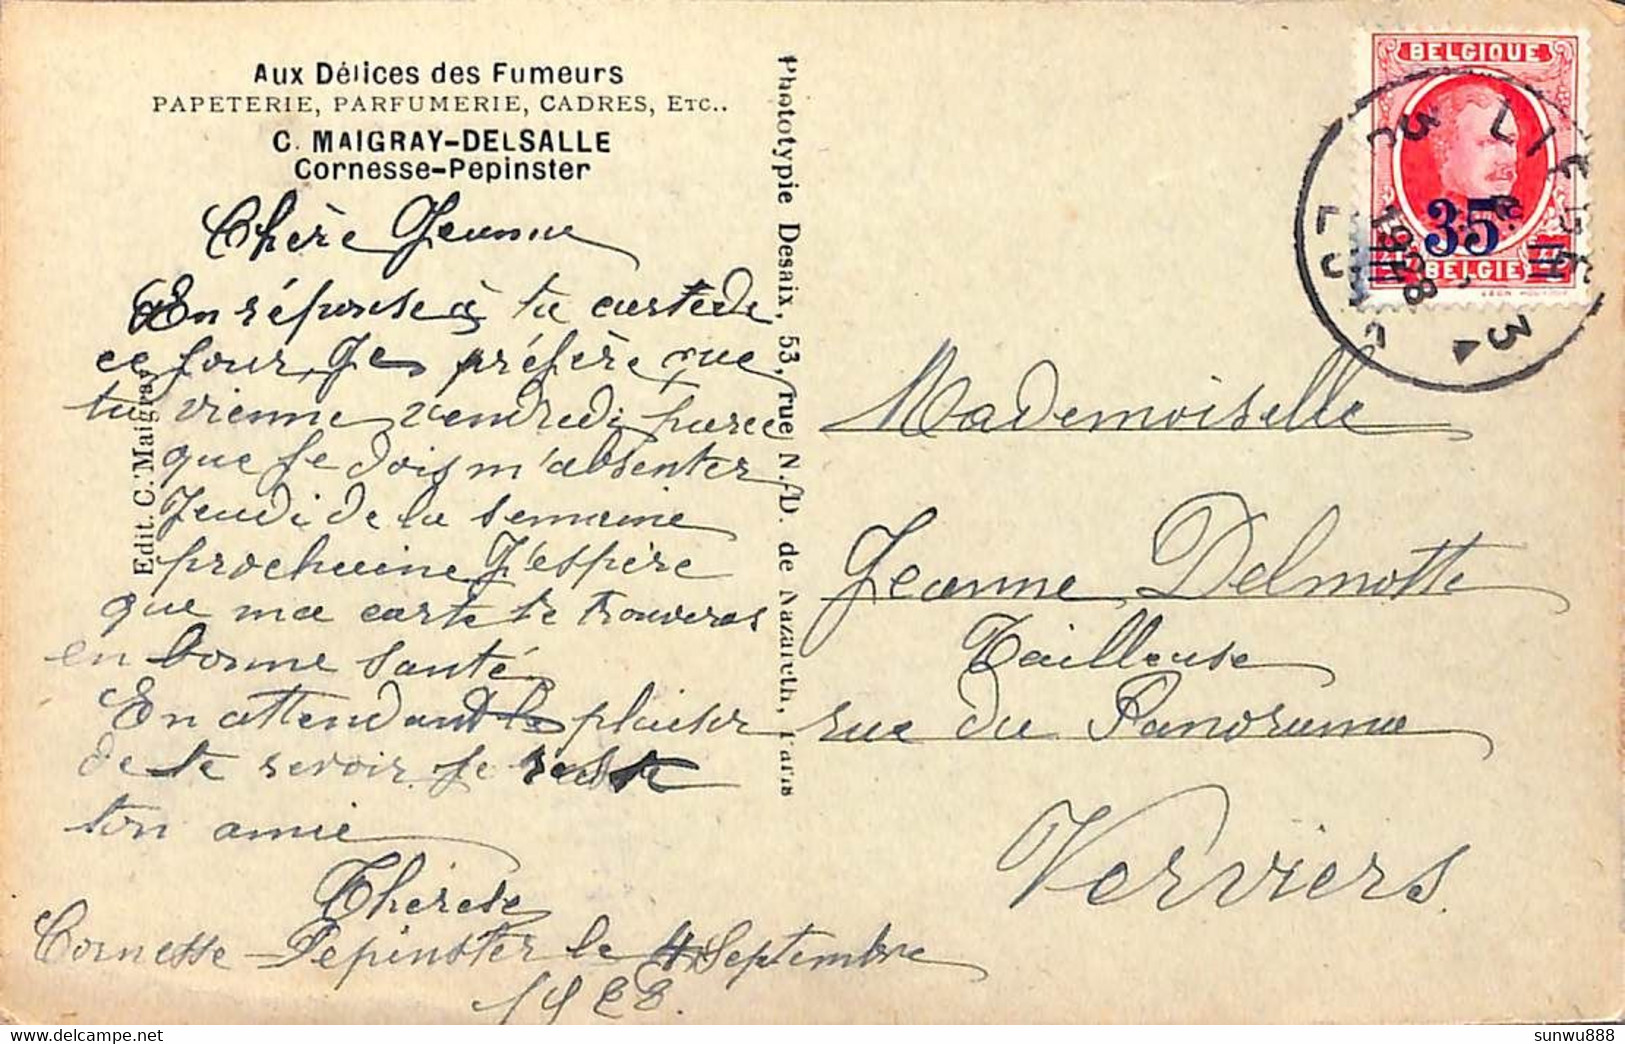 Aux Délices des Fumeurs
PAPETERIE, PARFUMERIE, CADRES, ETC..
C. MAIGRAY-DELSALLE
Cornesse-Pepinster
Chère Jeanne
En réponse à ta carte de
ce jour, Je préfère que
tu vienne vendredi parce
que je dois m'absenter
Jeudi de la semaine
prochaine J'espère
que ma carte te trouveras
en bonne santé,
En attendant le plaisir
de te revoir je reste
ton amie
Thérèse
Cornesse-Pepinster le 4 Septembre
1928.
Edit. C. Maigray
Phototypie Desaix, 53, rue N.-D. de Nazareth, Paris
BELGIQUE
35c
BELGIE
LIEGE
3
1928
3
Mademoiselle
Jeanne Delmotte
Tailleuse
rue du Panorama
Verviers.
sunwu888